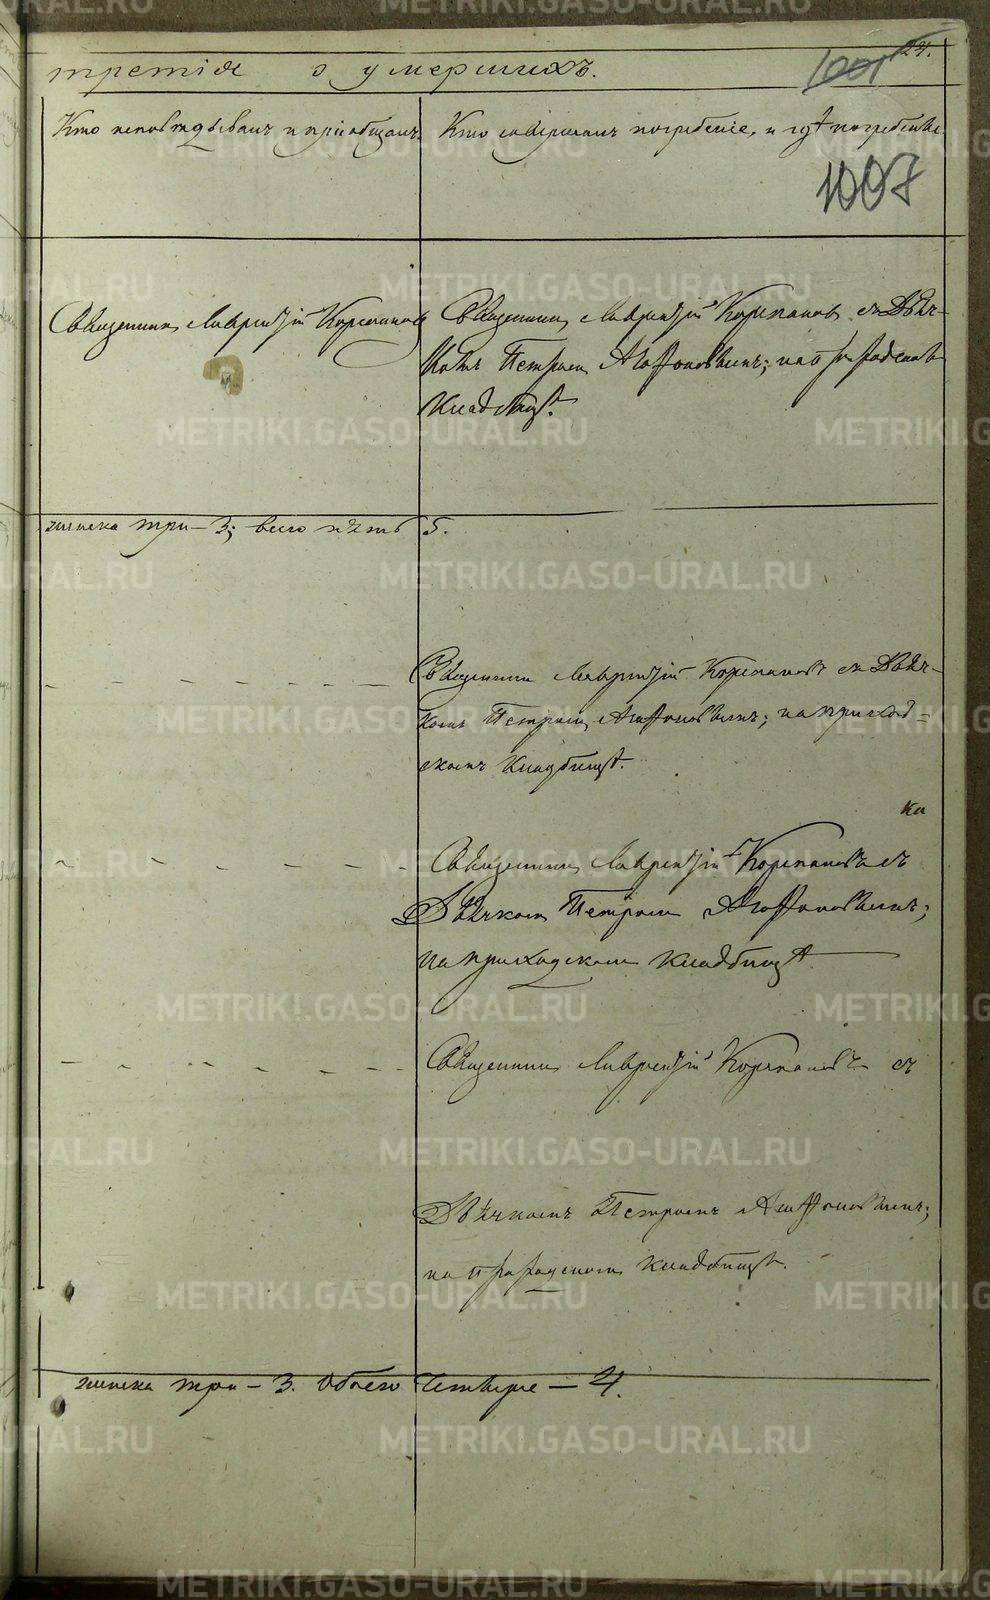 третія о умершихъ.
24.
1001
Кто исповѣдывалъ и пріобщалъ.
Кто совершалъ погребеніе, и гдѣ погребены.
1007
Священникъ Лаврентій Корепановъ
Священникъ Лаврентій Корепановъ съ Дьяч-
комъ Петромъ Агафоновымъ; на приходскомъ
Кладбищѣ.
женска три – 3; всего пять 5.
Священникъ Лаврентій Корепановъ съ Дьяч-
комъ Петромъ Агафоновымъ; на приход=
скомъ Кладбищѣ.
ка
Священникъ Лаврентій Корепановъ съ
Дьячкомъ Петромъ Агафоновымъ;
на приходскомъ кладбищѣ
Священникъ Лаврентій Корепановъ съ
Дьячкомъ Петромъ Агафоновымъ;
на приходскомъ Кладбищѣ.
женска три – 3. Обоего Четверо – 4.
METRIKI.GASO-URAL.RU